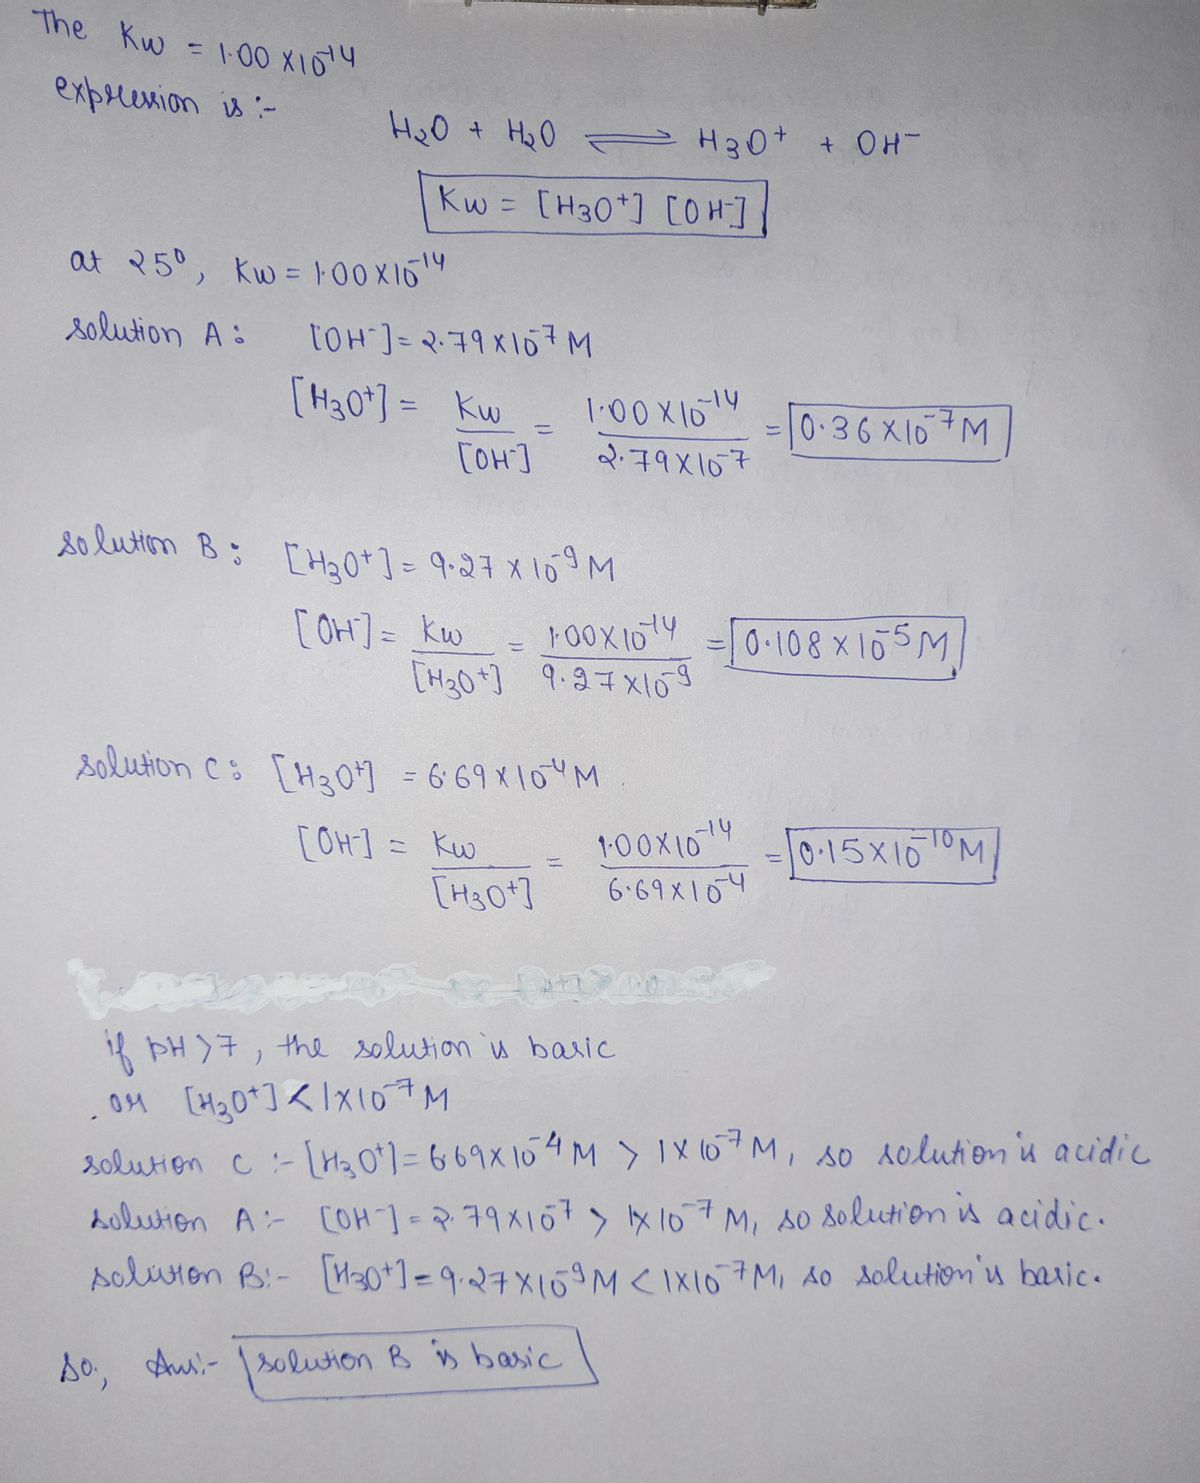 The Kw = 1.00 x 10⁻¹⁴
expression is :-
H₂O + H₂O ⇌ H₃O⁺ + OH⁻
Kw = [H₃O⁺] [OH⁻]
at 25⁰, Kw = 1.00 x 10⁻¹⁴
solution A : [OH⁻] = 2.79 x 10⁻⁷ M
[H₃O⁺] = Kw / [OH⁻] = 1.00 x 10⁻¹⁴ / 2.79 x 10⁻⁷ = 0.36 x 10⁻⁷ M
solution B : [H₃O⁺] = 9.27 x 10⁻⁹ M
[OH⁻] = Kw / [H₃O⁺] = 1.00 x 10⁻¹⁴ / 9.27 x 10⁻⁹ = 0.108 x 10⁻⁵ M
solution C : [H₃O⁺] = 6.69 x 10⁻⁴ M
[OH⁻] = Kw / [H₃O⁺] = 1.00 x 10⁻¹⁴ / 6.69 x 10⁻⁴ = 0.15 x 10⁻¹⁰ M
if pH > 7, the solution is basic
or [H₃O⁺] < 1 x 10⁻⁷ M
solution C :- [H₃O⁺] = 6.69 x 10⁻⁴ M > 1 x 10⁻⁷ M, so solution is acidic
solution A :- [OH⁻] = 2.79 x 10⁻⁷ > 1 x 10⁻⁷ M, so solution is acidic.
solution B :- [H₃O⁺] = 9.27 x 10⁻⁹ M < 1 x 10⁻⁷ M, so solution is basic.
so, Ans:- solution B is basic